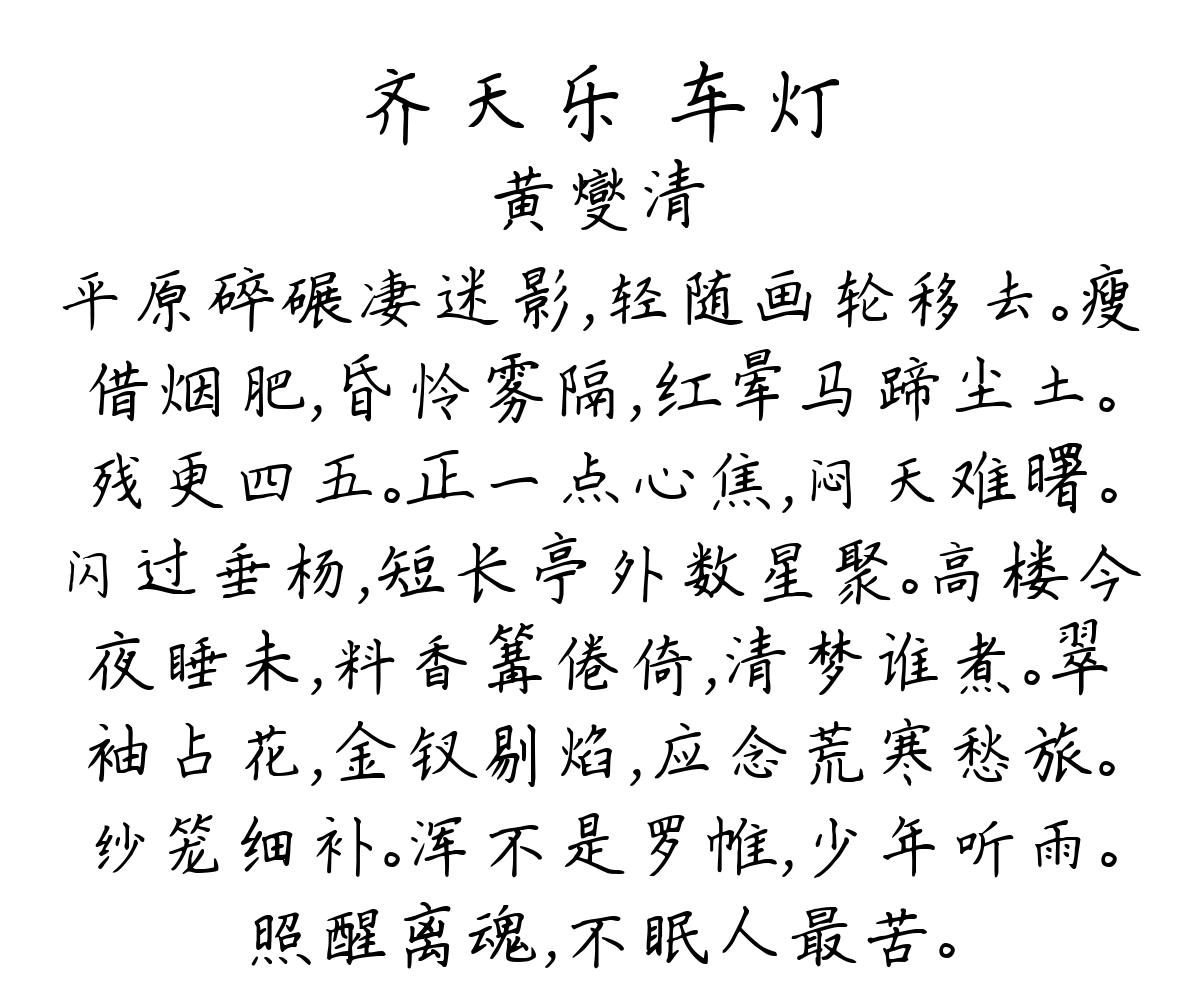 齐天乐 车灯
黄燮清
平原碎碾凄迷影,轻随画轮移去。瘦
借烟肥,昏怜雾隔,红晕马蹄尘土。
残更四五。正一点心焦,闷天难曙。
闪过垂杨,短长亭外数星聚。高楼今
夜睡未,料香篝倦倚,清梦谁煮。翠
袖占花,金钗剔焰,应念荒寒愁旅。
纱笼细补。浑不是罗帷,少年听雨。
照醒离魂,不眠人最苦。